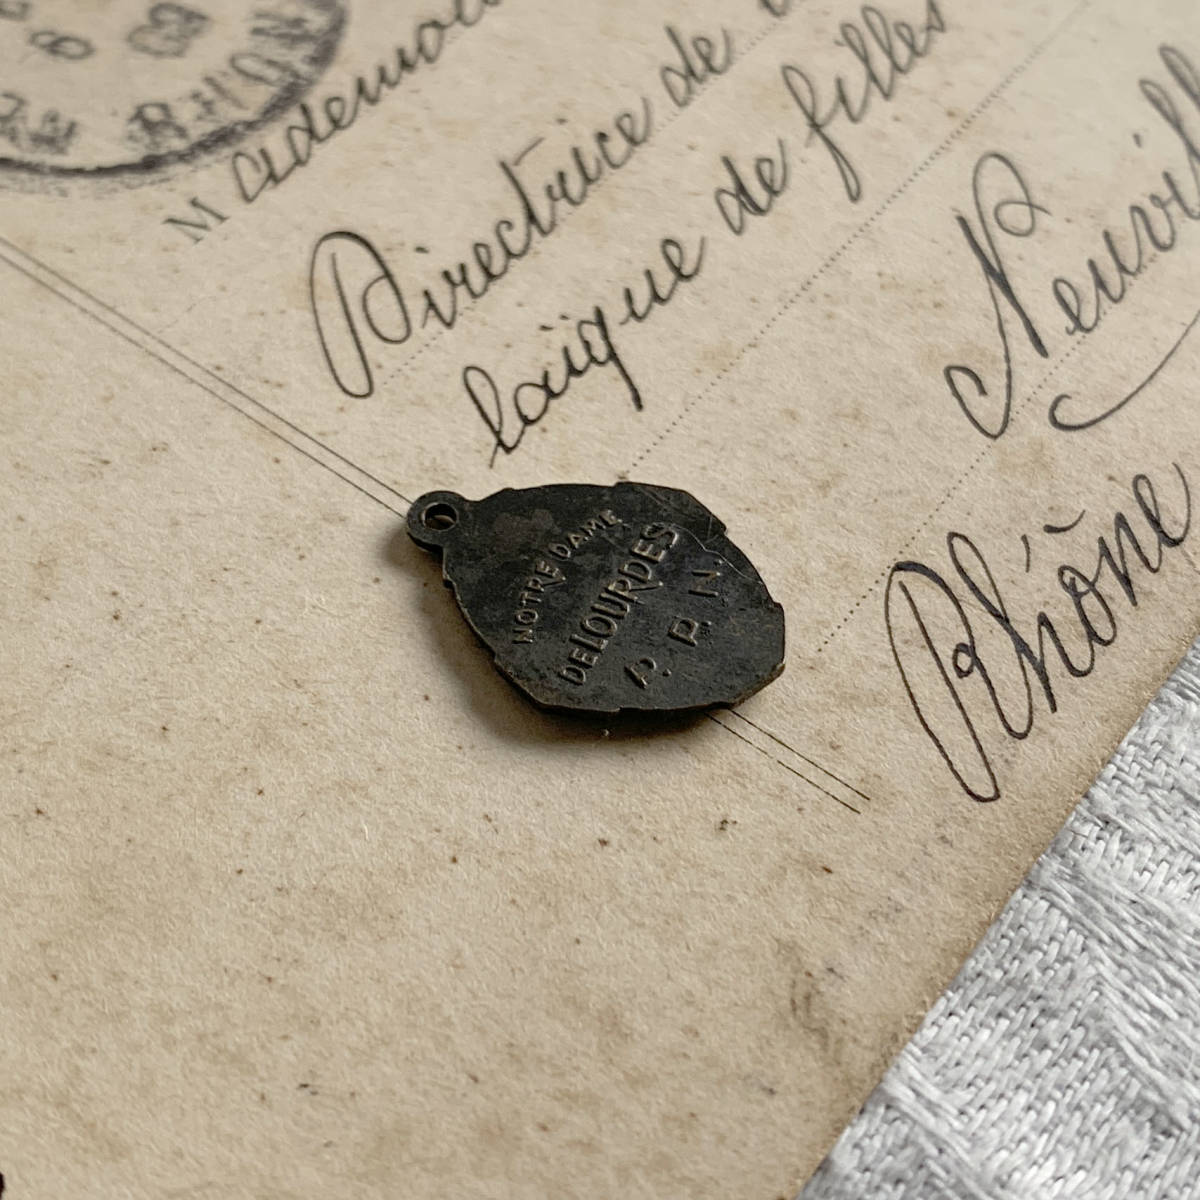 RHÔN
M
Directrice de
laïque de filles
Rhône
NOTRE DAME
DE LOURDES
P. P. N.